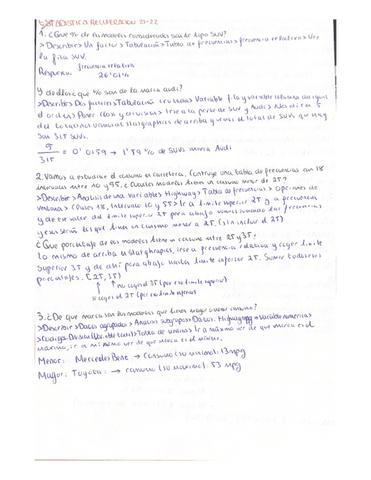 ESTADISTICA RECUPERACION 21-22
1. ¿Que % de los modelos considerados son de tipo SUV?
> Describir > Un factor > Tabulación > Tabla de frecuencias > frecuencia relativa > Ver
la fila SUV.
Respuesta: frecuencia relativa
26'01%
Y de ellos ¿que % son de la marca audi?
> Describir > Dos factores > Tabulación cruzada > Variable fila y variable columna da igual
el orden > Poner clases y > Irse a la parte de SUV y Audi > Nos dice 5
del total nos vamos al statgraphics de arriba y vemos el total de SUVs que hay
son 315 SUVs.
5/315 = 0'0159 → 1'59 % de SUVs marca Audi
2. Vamos a estudiar el consumo en carretera. Construye una tabla de frecuencias con 18
intervalos entre 10 y 55. ¿Cuántos modelos tienen un consumo menor de 25?
> Describir > Análisis de una variable > Highway > Tabla de frecuencias > Opciones de
Ventana > Clases 18, Intervalo 10 y 55 > Ir a limite superior 25 y a frecuencia
y de ese valor del limite superior 25 para abajo vamos sumando las frecuencias
y esos serán los que tienen un consumo menor a 25. (sin incluir el 25)
¿Que porcentaje de los modelos tiene un consumo entre 25 y 35?
Lo mismo de arriba en Statgraphics, irse a frecuencia relativa y coger limite
superior 35 y de ahí para abajo hasta limite inferior 25. Sumar todos los
porcentajes. [25, 35)
no coge el 35 (por eso limite superior)
si coge el 25 (por eso limite inferior)
3. ¿De que marca son los modelos que tienen mayor o menor consumo?
> Describir > Datos agrupados > Análisis subgrupos > Datos: Highway mpg > Variables numéricas
> Tabla de > Ir a máximo ver de que marca es el
máximo, ir a mínimo ver de que marca es el mínimo.
Menor: Mercedes Benz → consumo (su maximo): 13 mpg
Mayor: Toyota: → consumo (su maximo): 53 mpg